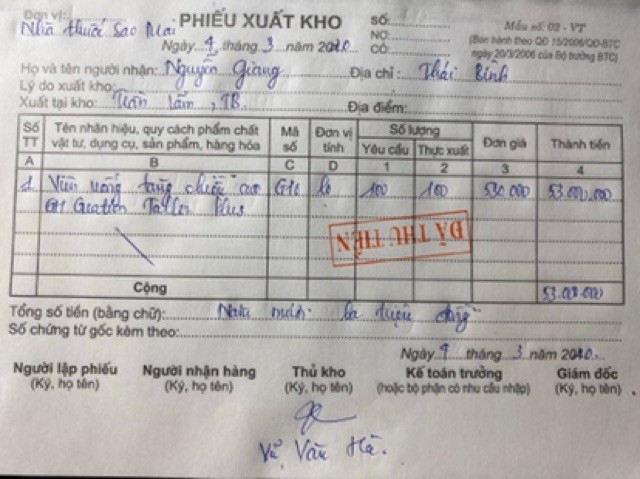 Đơn vị: Nhà thuốc Sao Mai
PHIẾU XUẤT KHO
Số:
NỢ:
CÓ:
Mẫu số: 02 - VT
(Ban hành theo QĐ 15/2006/QĐ-BTC
ngày 20/3/2006 của Bộ trưởng BTC)
Ngày 9 tháng 3 năm 2020
Họ và tên người nhận: Nguyễn Giang Địa chỉ: Thái Bình
Lý do xuất kho:
Xuất tại kho: Trần Lãm, TB. Địa điểm:
Số TT Tên nhãn hiệu, quy cách phẩm chất vật tư, dụng cụ, sản phẩm, hàng hóa Mã số Đơn vị tính Số lượng Đơn giá Thành tiền
Yêu cầu Thực xuất
A B C D 1 2 3 4
1 Viên uống tăng chiều cao GH lọ 100 100 530.000 53.000.000
GH Creation Plus
ĐÃ THU TIỀN
Cộng 53.000.000
Tổng số tiền (bằng chữ): Năm mươi ba triệu đồng
Số chứng từ gốc kèm theo:
Ngày 9 tháng 3 năm 2020.
Người lập phiếu Người nhận hàng Thủ kho Kế toán trưởng Giám đốc
(Ký, họ tên) (Ký, họ tên) (Ký, họ tên) (hoặc bộ phận có nhu cầu nhập) (Ký, họ tên)
Vũ Văn Hà.